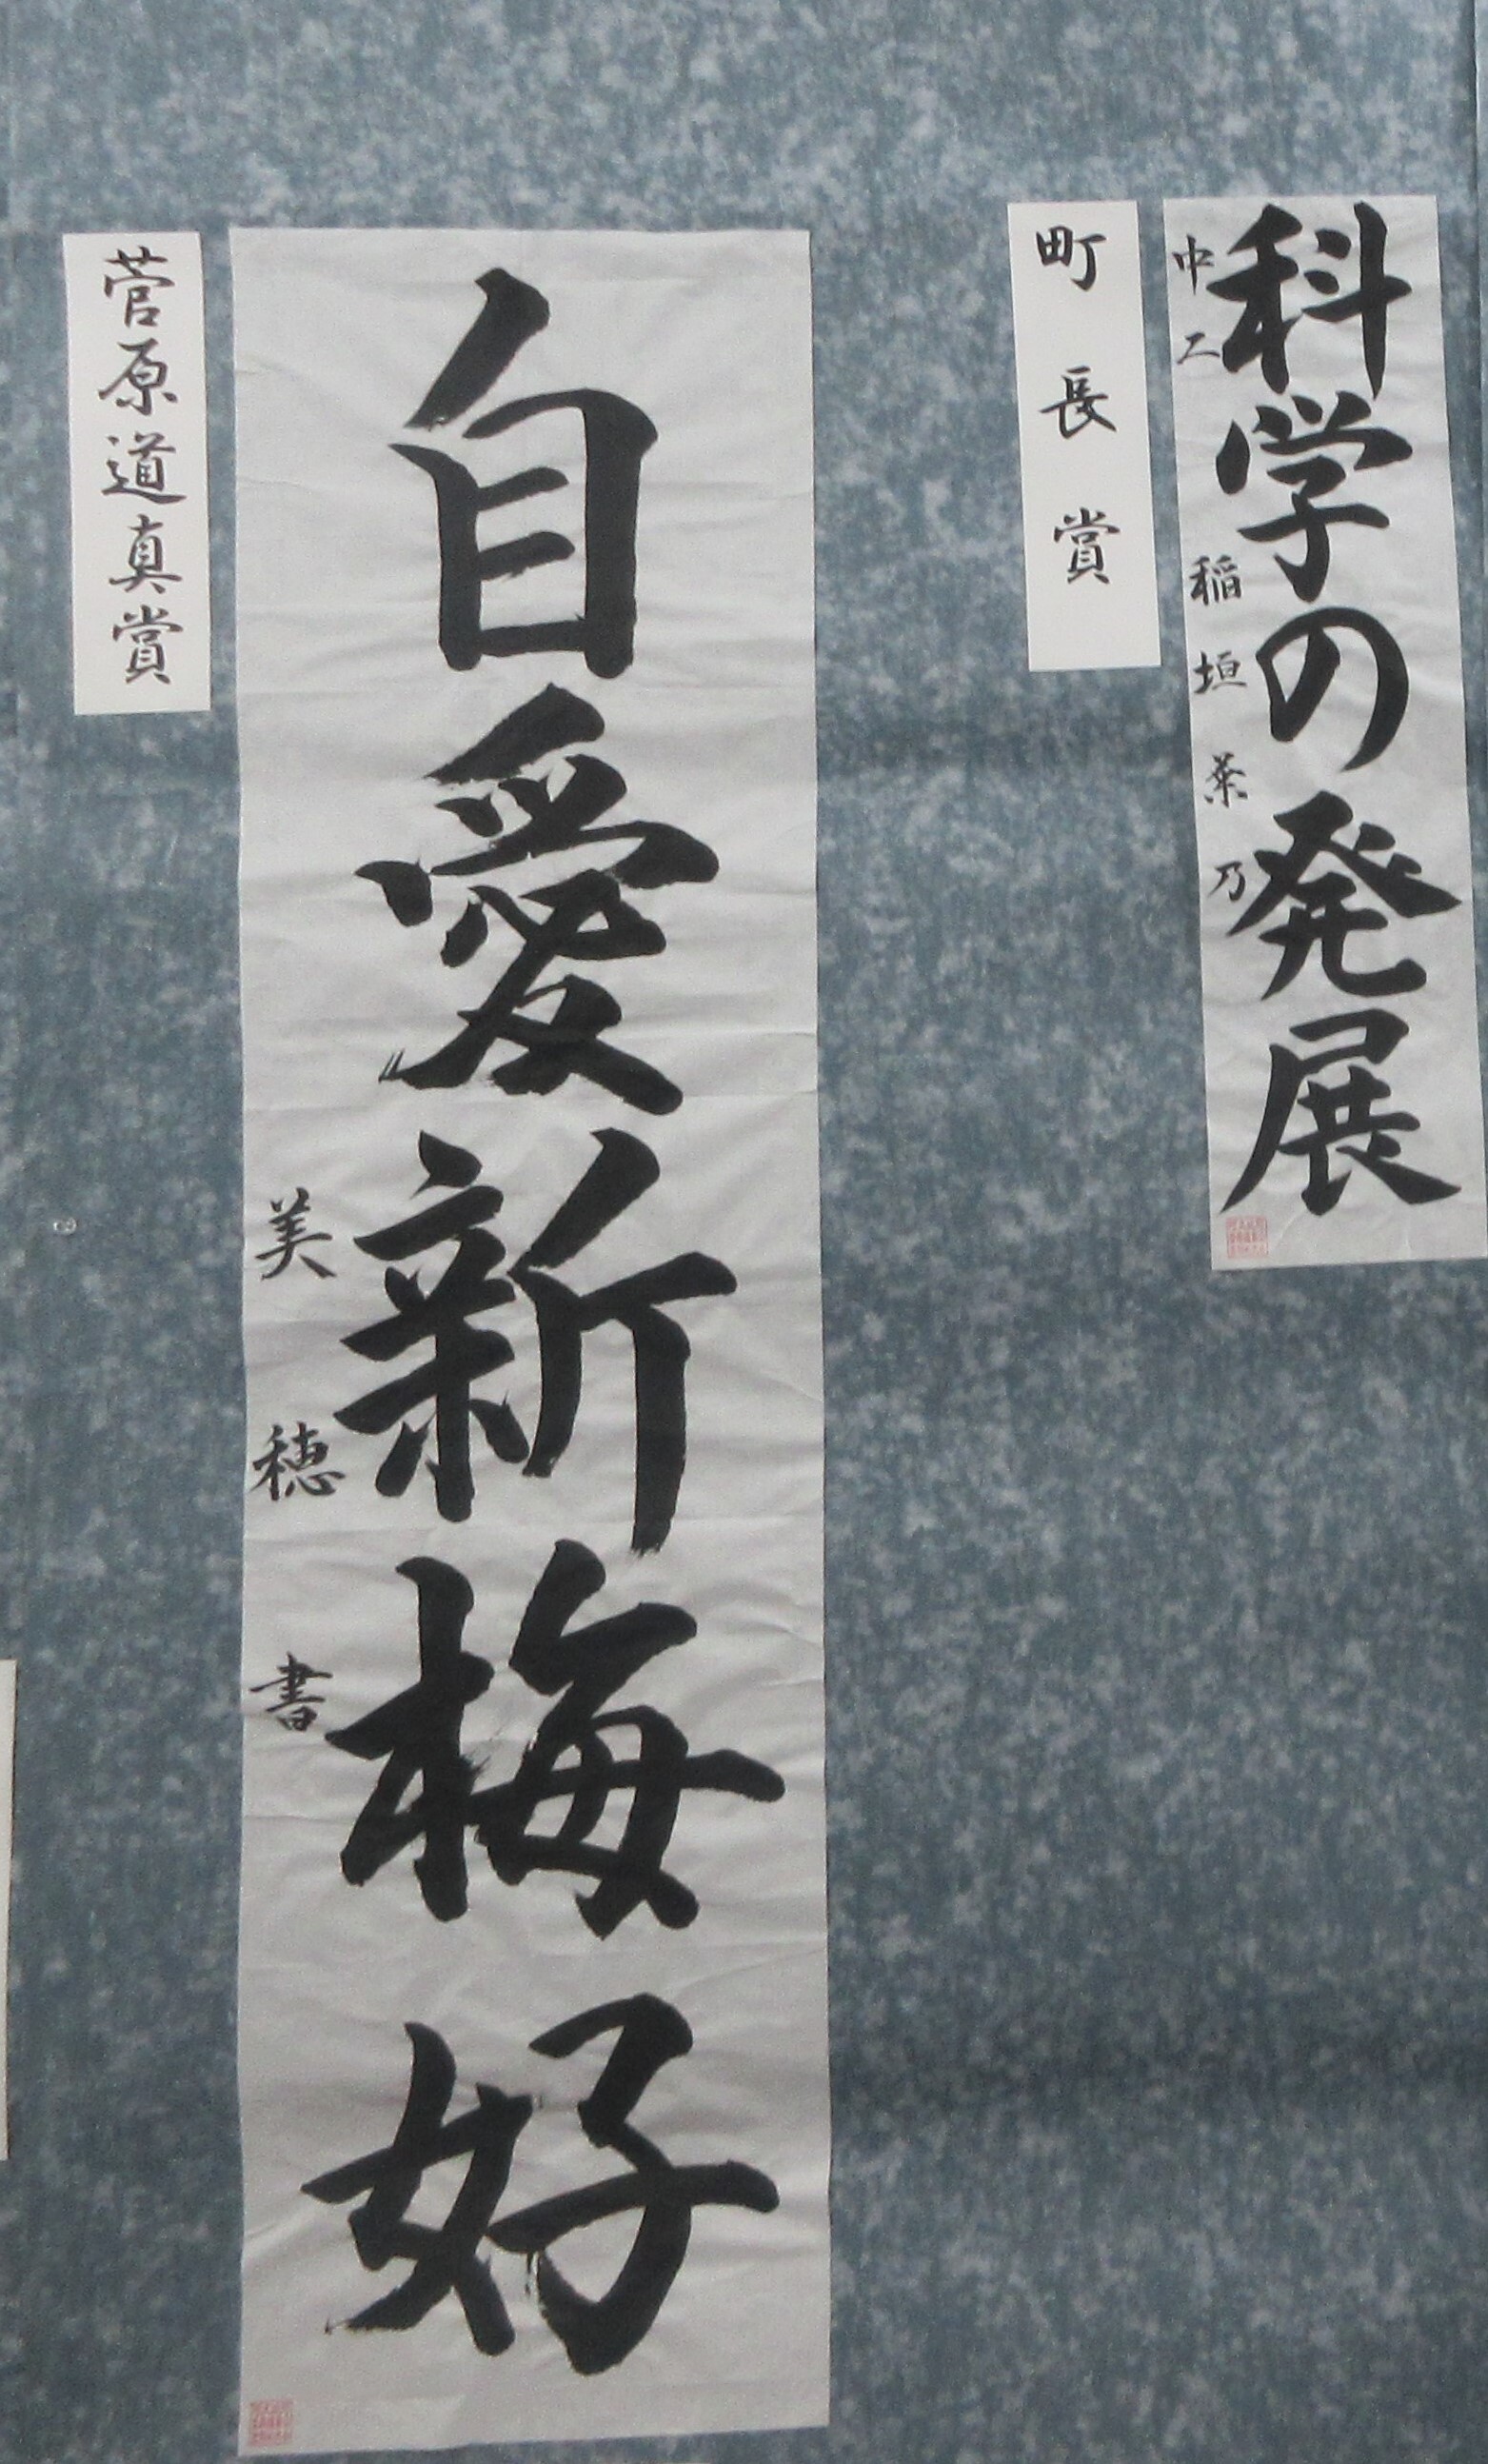 科学の発展
中二 稲垣葉乃
町長賞
自愛新梅好
美穂書
菅原道真賞